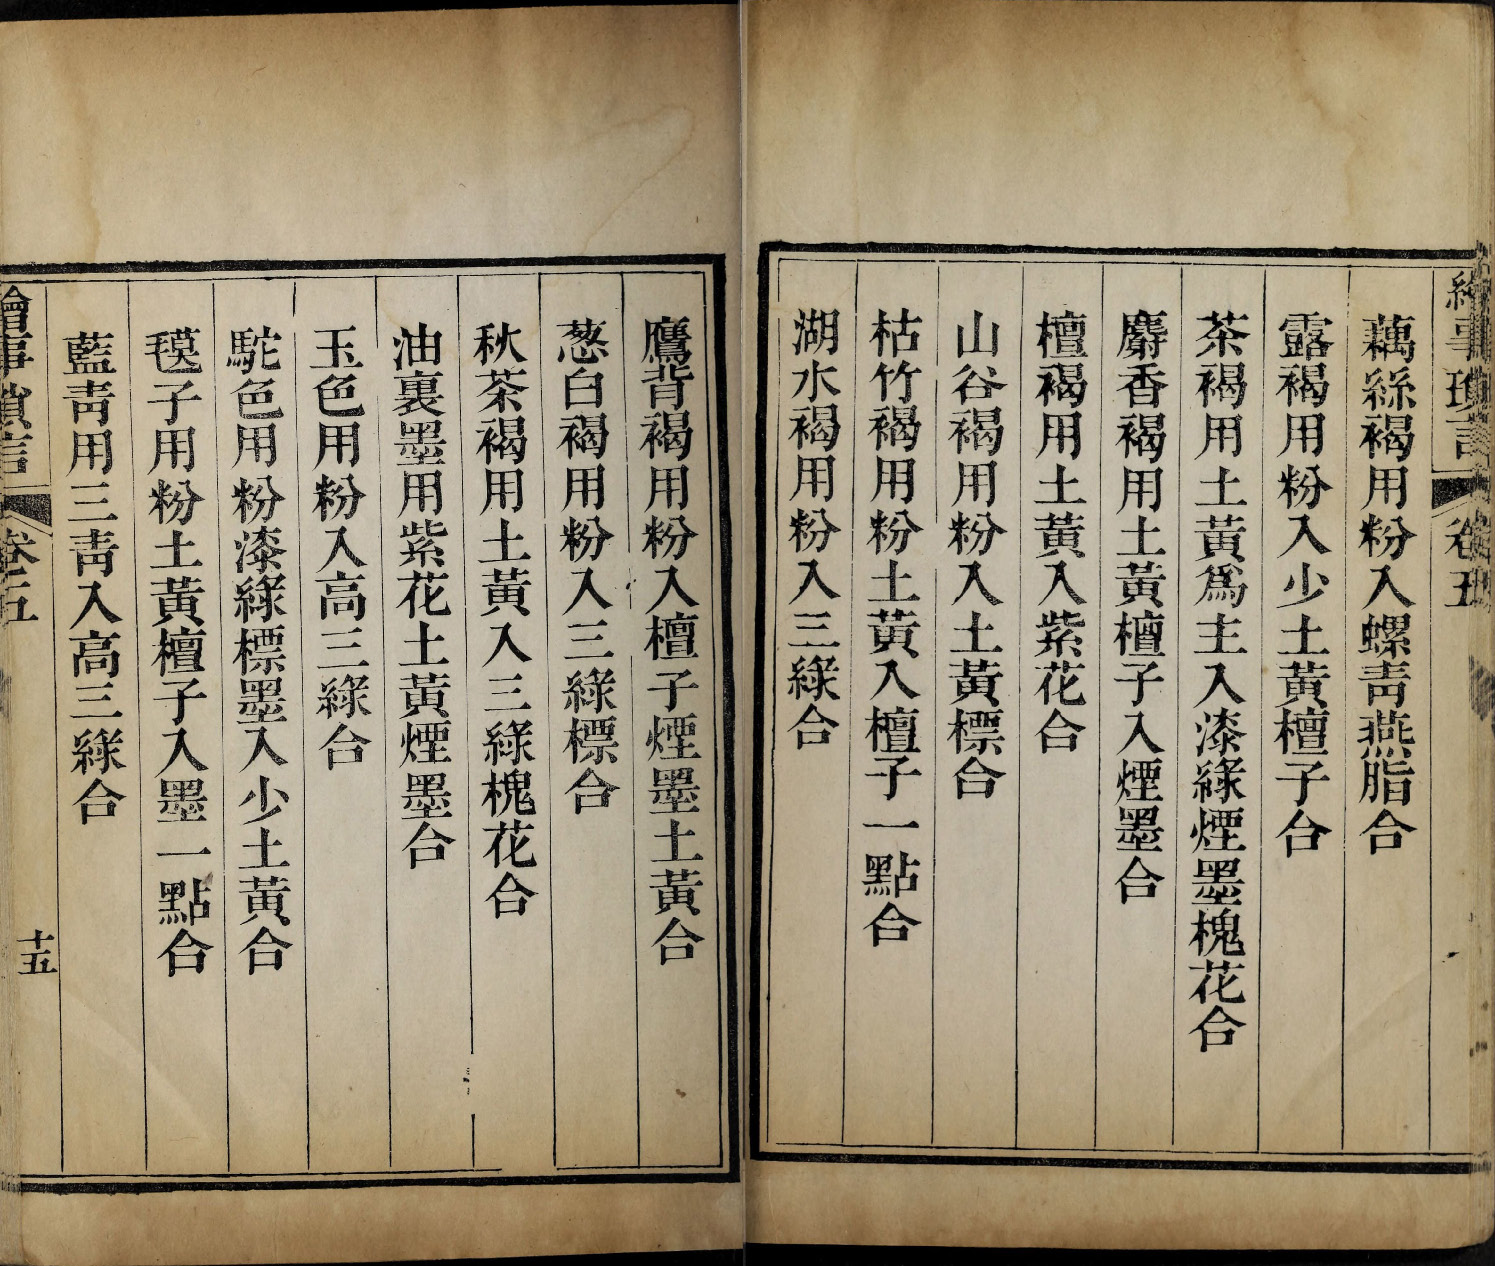 繪事瑣言 卷五
藕絲褐用粉入螺青燕脂合
露褐用粉入少土黃檀子合
茶褐用土黃爲主入漆綠煙墨槐花合
麝香褐用土黃檀子入煙墨合
檀褐用土黃入紫花合
山谷褐用粉入土黃標合
枯竹褐用粉土黃入檀子一點合
湖水褐用粉入三綠合
鷹背褐用粉入檀子煙墨土黃合
葱白褐用粉入三綠標合
秋茶褐用土黃入三綠槐花合
油裏墨用紫花土黃煙墨合
玉色用粉入高三綠合
駝色用粉漆綠標墨入少土黃合
氊子用粉土黃檀子入墨一點合
藍青用三青入高三綠合
繪事瑣言 卷五 十五